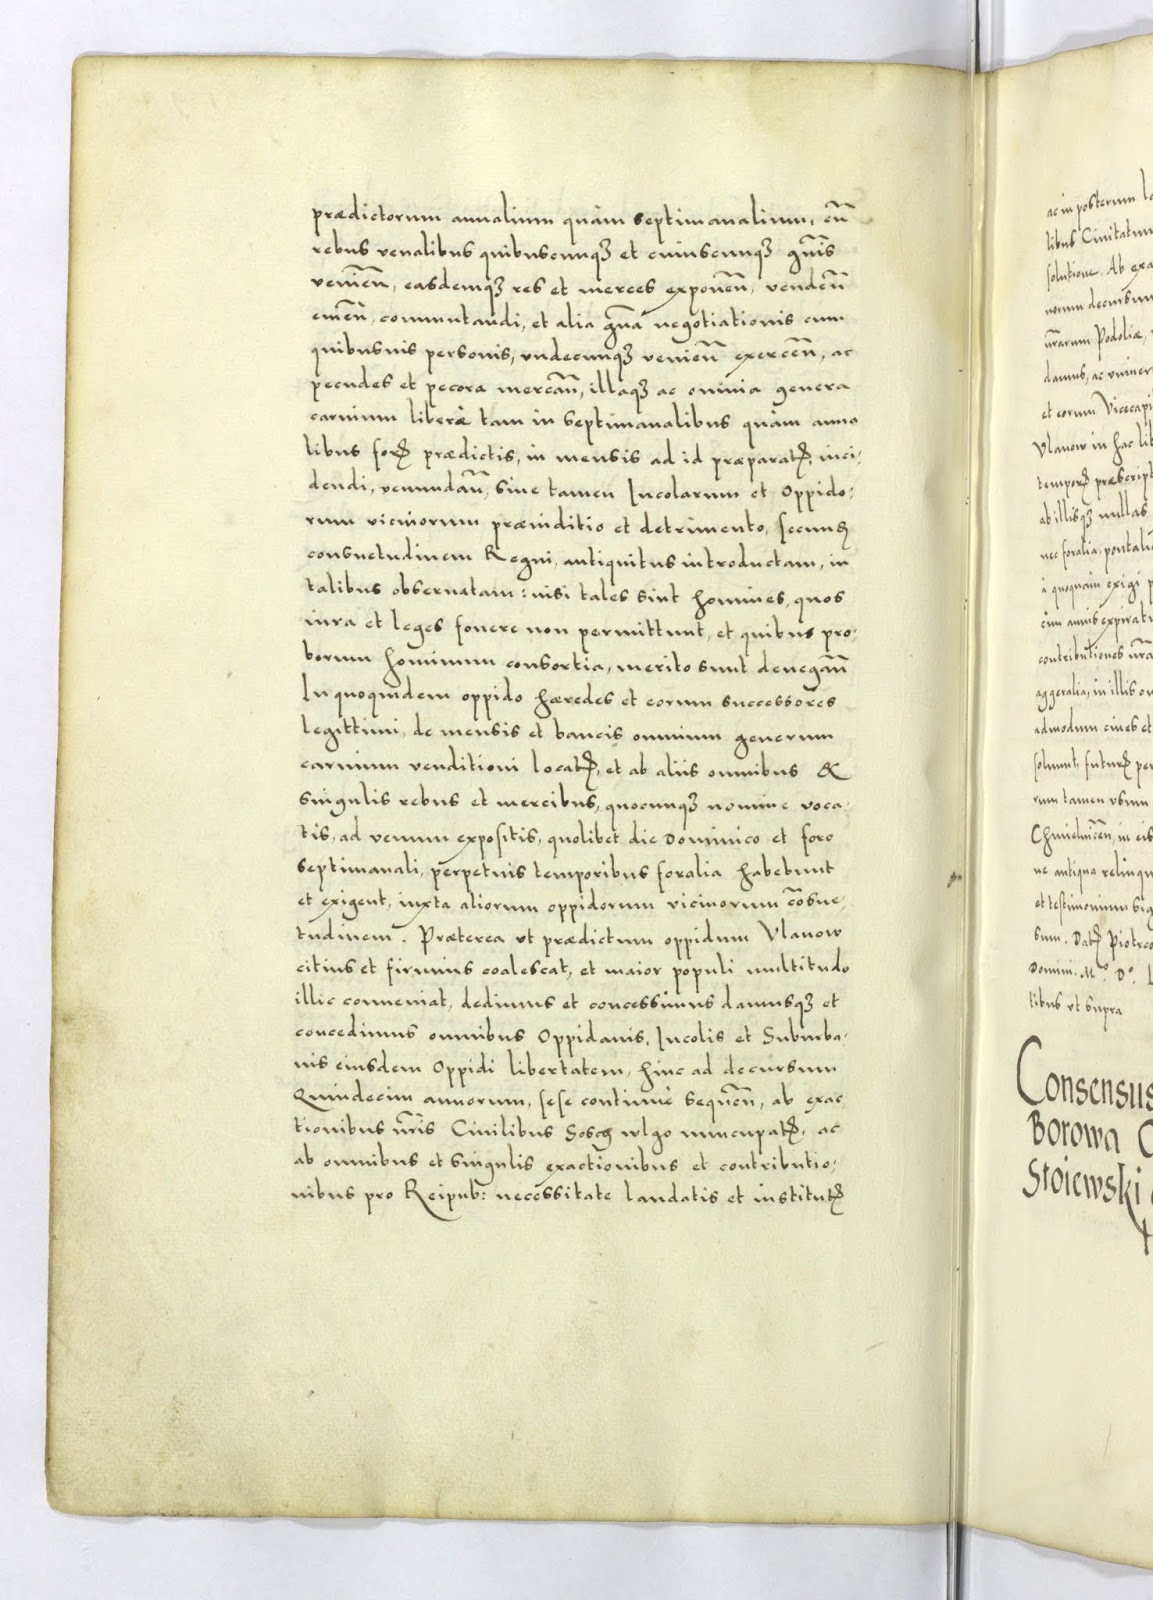 prædictorum annalium quàm septimanalium, cũ
rebus venalibus quibuscunqꝫ et cuiuscunqꝫ gñis
venieñ, easdemqꝫ res et merces exponeñ, vendeñ
emeñ, commutandi, et alia gña negotiationis cum
quibusuis personis, vndecunqꝫ venieñ exerceñ, ac
pecudes et pecora mercañ, illaqꝫ ac omnia genera
carnium liberè tam in septimanalibus quàm anna
libus forꝭ prædictis, in mensis ad id præparatꝭ, inci-
dendi, venundañ, sine tamen Incolarum et Oppido-
rum vicinorum præiuditio et detrimento, secundꝭ
consuetudinem Regni, antiquitus introductam, in
talibus obseruatam: nisi tales sint homines, quos
iura et leges fouere non permittunt, et quibus pro-
borum hominum consortia, merito sunt denegañ
In quoquidem oppido hæredes et eorum successores
legittimi, de mensis et bancis omnium generum
carnium venditioni locatꝭ, et ab aliis omnibus &
singulis rebus et mercibus, quocunqꝫ nomine voca-
tis, ad venum expositis, quolibet die Dominico et foro
septimanali, perpetuis temporibus foralia habebunt
et exigent, iuxta aliorum oppidorum vicinorum cõsue-
tudinem. Præterea vt prædictum oppidum Vlanow
citius et firmius coalescat, et maior populi multitudo
illic conueniat, dedimus et concessimus damusqꝫ et
concedimus omnibus Oppidanis, Incolis et Suburba-
nis eiusdem Oppidi libertatem, hinc ad decursum
Quindecim annorum, sese continuè sequeñ, ab exac
tionibus nr̃is Ciuilibus Sosch wlgo nuncupatꝭ, ac
ab omnibus et singulis exactionibus et contributio-
nibus pro Reipub: necessitate laudatis et institutꝭ
ac in posterum
libus Ciuitatum
solutione. Ab
norum decursum
nr̃arum Podoliæ,
damus, ac
et eorum Vicecapi
Vlanow in hac
temporꝭ præscript
ab illisqꝫ nullas
nec foralia, pontali
à quoquam exigi
cùm annis expirat
contributiones nr̃a
aggeralia, in illis
admodum ciues et
soluunt, futurꝭ
rum tamen vsum
Chmielniceñ, in eis
ne antiqua relinqu
et testimonium sig
sum. Datꝭ Piotrco
Domini. Mº. Dº. L
tibus vt supra
Consensus
Borowa
Stoiewski